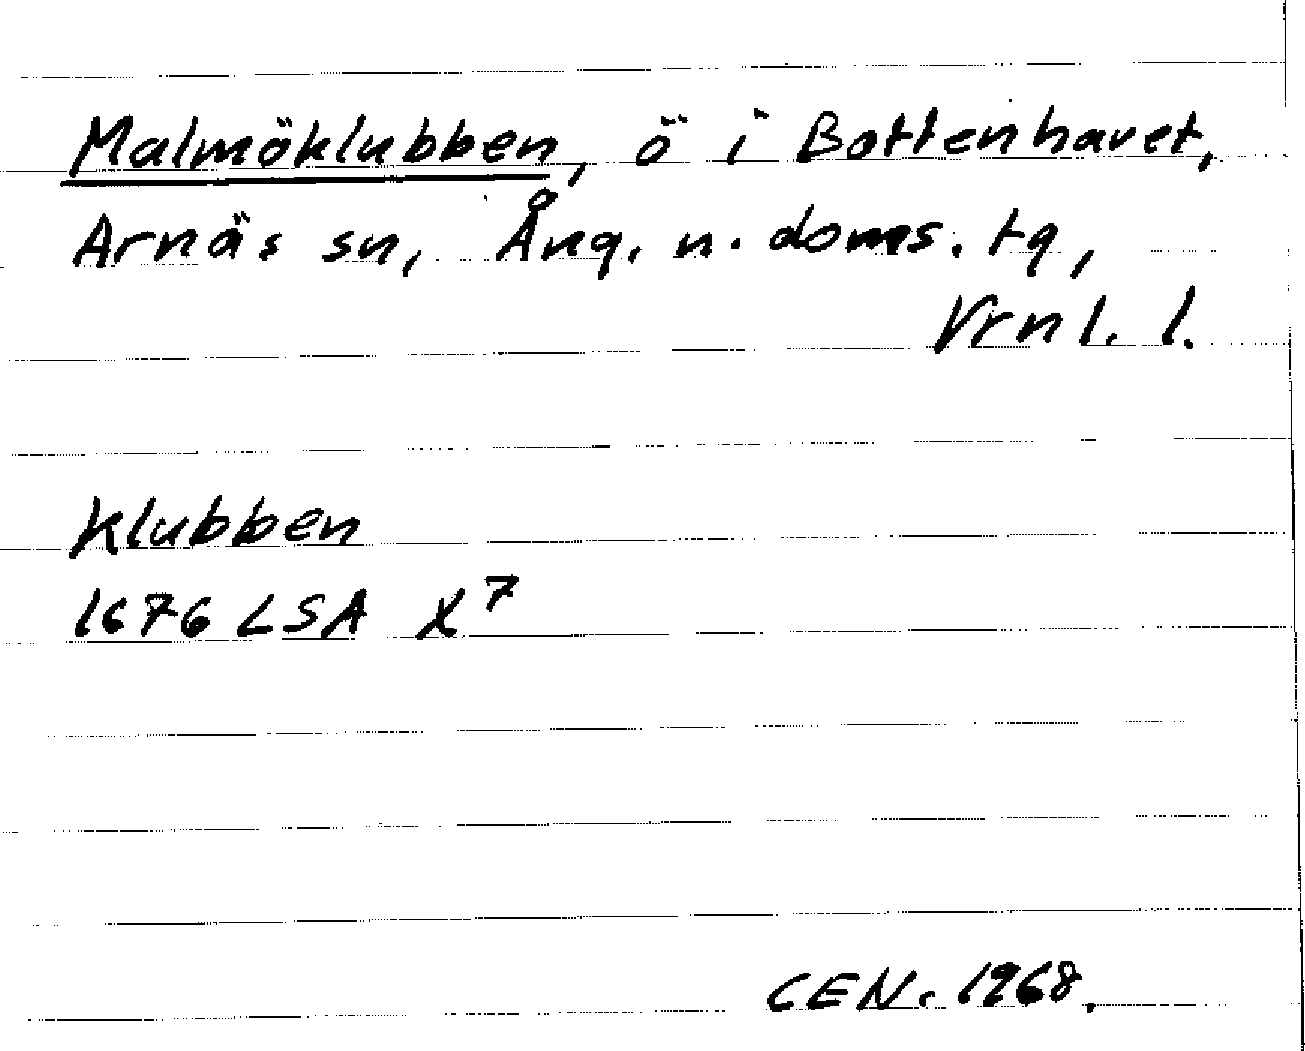 Malmöklubben, ö i Bottenhavet,
Arnäs sn, Ång. n. doms. tg,
Vrnl. l.
Klubben
1676 LSA X7
CEN. 1968.